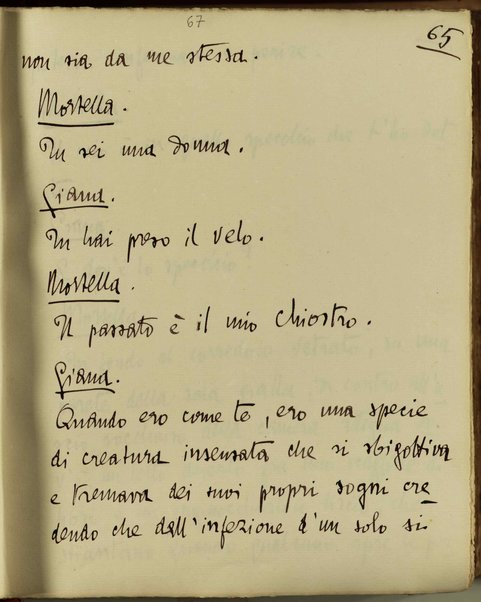 67
65
non sia da me stessa.
Mortella.
Tu sei una donna.
Giana.
Tu hai preso il velo.
Mortella.
Il passato è il mio chiostro.
Giana.
Quando ero come te, ero una specie
di creatura insensata che si sbigottiva
e tremava dei suoi propri sogni cre
dendo che dall'infezione d'un solo si